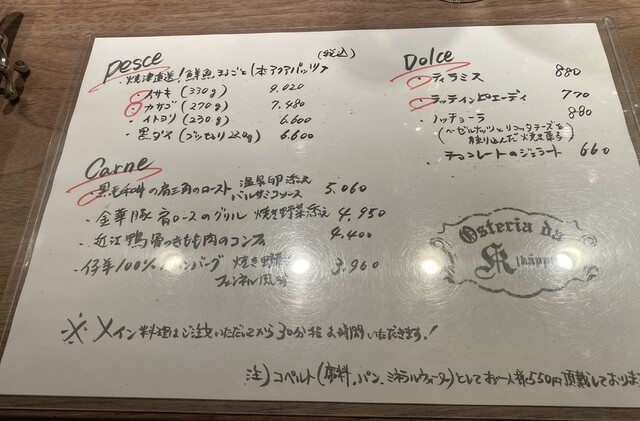 Pesce (税込)
・焼津直送!鮮魚まるごと1本アクアパッツァ
・イサキ (330g) 9.020
・カサゴ (270g) 7.480
・イトヨリ (230g) 6.600
・黒ダイ (ブツ切り 220g) 6.600
Carne
・黒毛和牛の肩三角のロースト 温泉卵添え バルサミコソース 5.060
・金華豚 肩ロースのグリル 焼き野菜添え 4.950
・近江鴨 骨つきもも肉のコンフィ 4.400
・仔羊100% ハンバーグ 焼き野菜 フェンネル風味 3.960
Dolce
・ティラミス 880
・ラッテインピエーディ 770
・ノッチョーラ 880
(ヘーゼルナッツとリコッタチーズを
練り込んだ焼き菓子)
・チョコレートのジェラート 660
Osteria da
K
※メイン料理はご注文いただいてから30分程お時間いただきます!
注) コペルト(席料、パン、ミネラルウォーター)としてお一人様550円頂戴しております